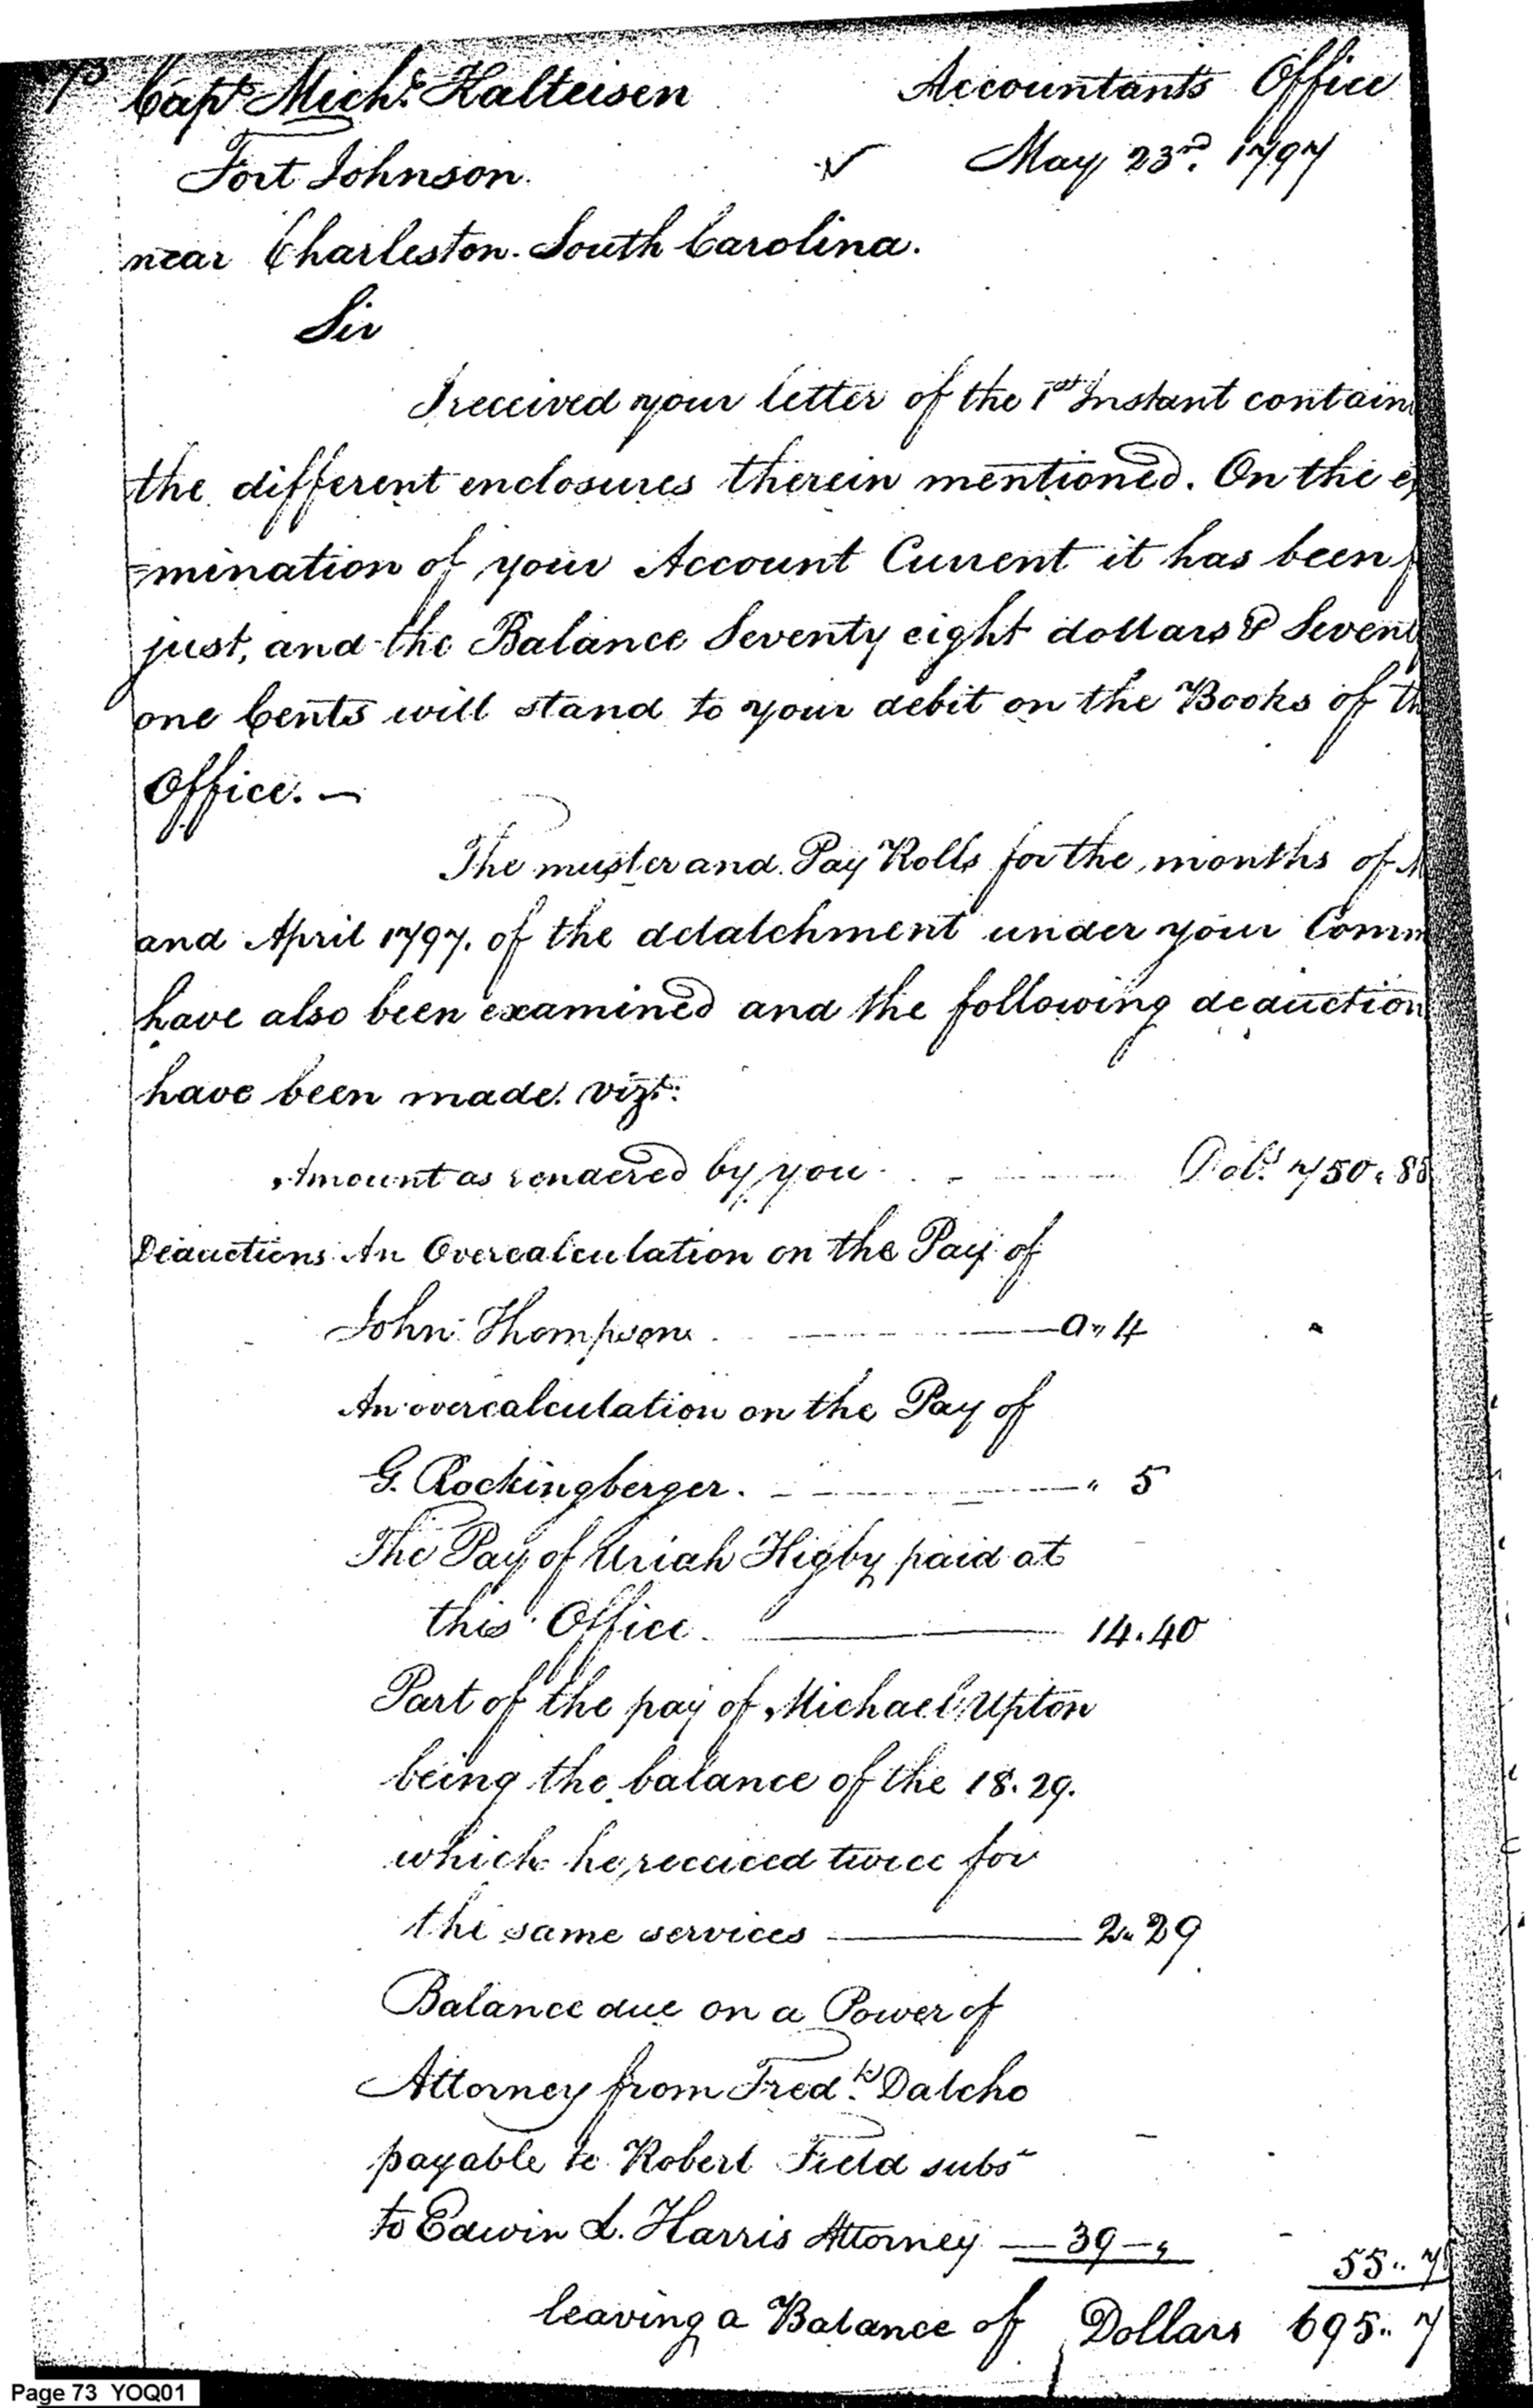 73 Capt. Michl. Kalteisen
Accountants Office
Fort Johnson.
May 23rd. 1797
near Charleston. South Carolina.
Sir
I received your letter of the 1st Instant contain
the different enclosures therein mentioned. On the
=mination of your Account Current it has been
just, and the Balance Seventy eight dollars & Sevent
one Cents will stand to your debit on the Books of th
Office. —
The muster and Pay Rolls for the months of
and April 1797. of the detatchment under your Comm
have also been examined and the following deduction
have been made. vizt:
Amount as rendered by you Dols. 750.85
Deductions An Overcalculation on the Pay of
John Thompson 0" 4
An overcalculation on the Pay of
G. Rockingberger. " 5
The Pay of Uriah Higby paid at
this Office. 14.40
Part of the pay of Michael Upton
being the balance of the 18.29.
which he received twice for
the same services 2" 29
Balance due on a Power of
Attorney from Fredk. Dalcho
payable to Robert Field subs
to Edwin L. Harris Attorney — 39 — "
55.. 7
leaving a Balance of Dollars 695.. 7
Page 73 YOQ01